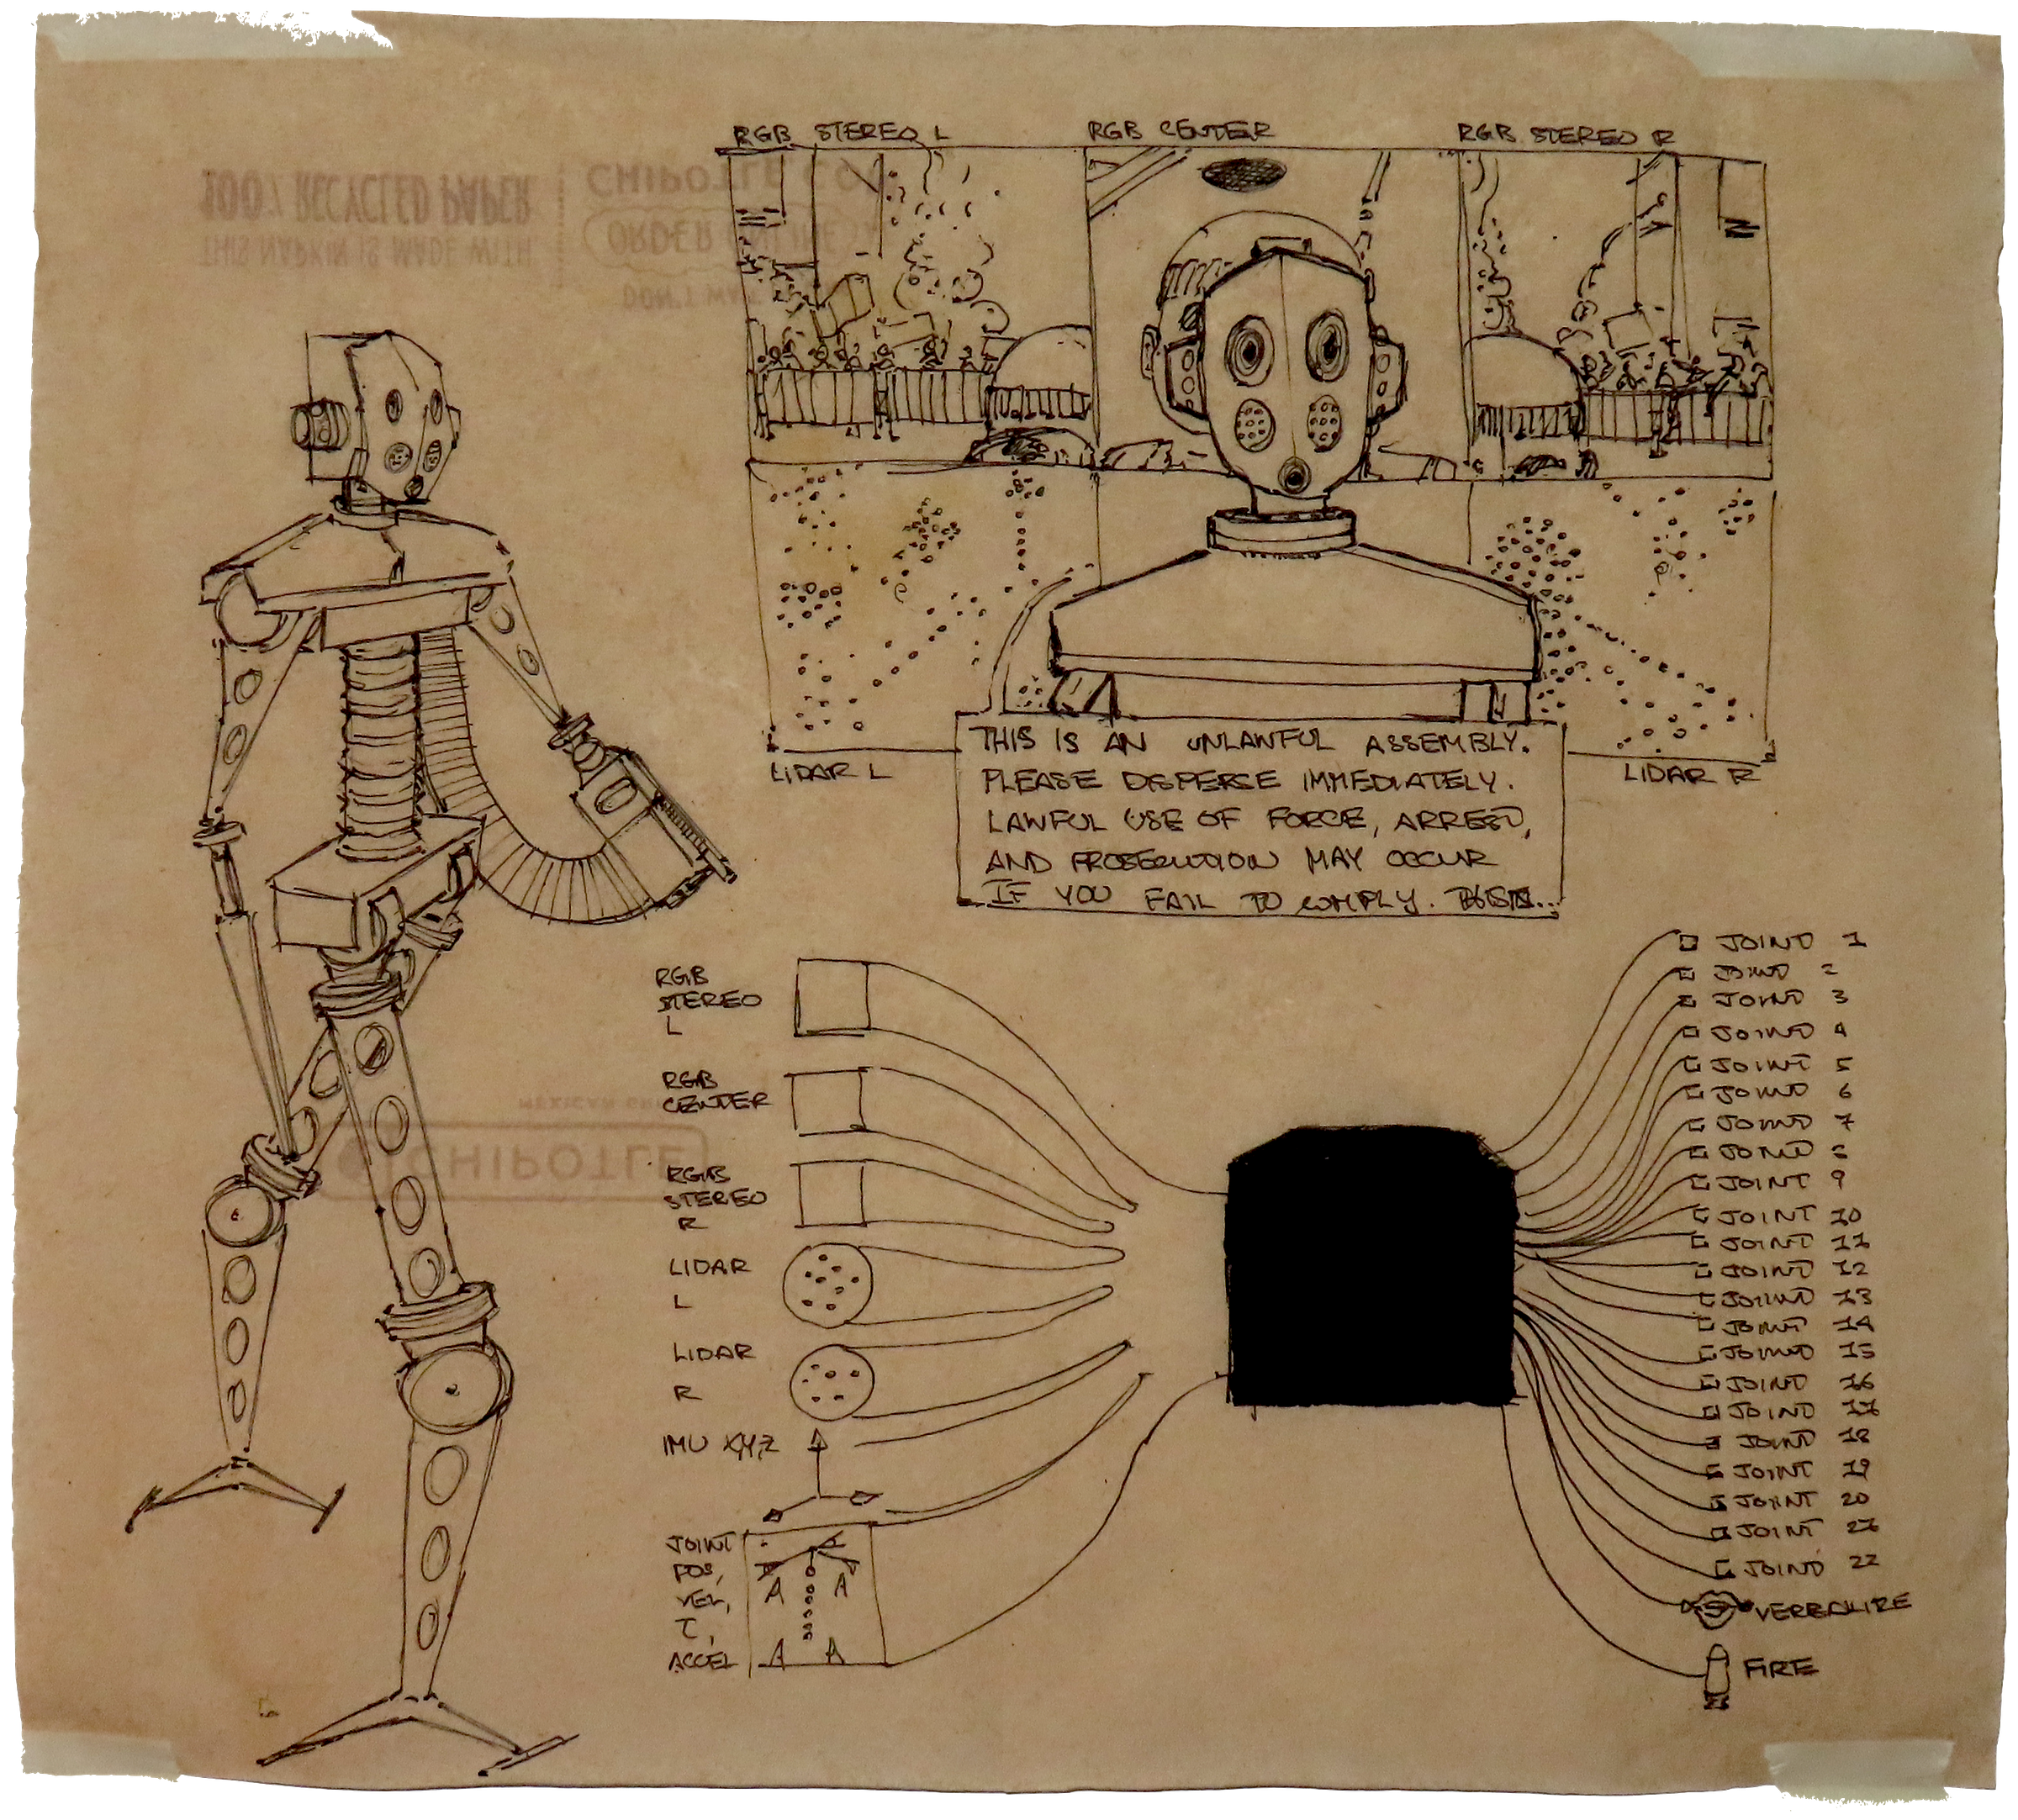 RGB STEREO L
RGB CENTER
RGB STEREO R
100% RECYCLED PAPER
THIS NAPKIN IS MADE WITH
CHIPOTLE
ORDER
DON'T
LIDAR L
LIDAR R
THIS IS AN UNLAWFUL ASSEMBLY.
PLEASE DISPERSE IMMEDIATELY.
LAWFUL USE OF FORCE, ARREST,
AND PROSECUTION MAY OCCUR
IF YOU FAIL TO COMPLY.
RGB
STEREO
L
RGB
CENTER
MEXICAN
CHIPOTLE
RGB
STEREO
R
LIDAR
L
LIDAR
R
IMU X,Y,Z
JOINT
POS,
VEL,
τ,
ACCEL
JOINT 1
JOINT 2
JOINT 3
JOINT 4
JOINT 5
JOINT 6
JOINT 7
JOINT 8
JOINT 9
JOINT 10
JOINT 11
JOINT 12
JOINT 13
JOINT 14
JOINT 15
JOINT 16
JOINT 17
JOINT 18
JOINT 19
JOINT 20
JOINT 21
JOINT 22
VERBALIZE
FIRE